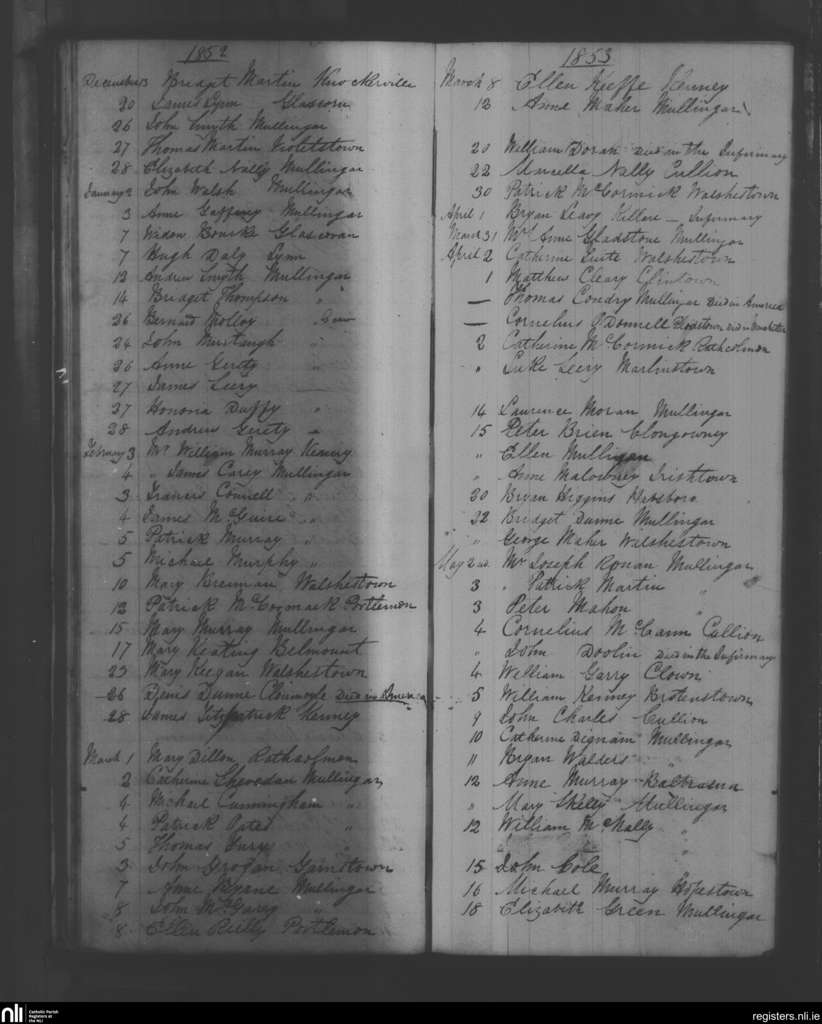 1852
December 13 Bridget Martin New Nerville
20 James Lynn Glascorn
26 John Smyth Mullingar
27 Thomas Martin Violetstown
28 Elizabeth Nally Mullingar
January 2 John Walsh Mullingar
3 Anne Gaffney Mullingar
7 Widow Bourke Glascorn
7 Hugh Daly Lynn
12 Andrew Smyth Mullingar
14 Bridget Thompson "
26 Bernard Molloy
24 John Murtaugh "
26 Anne Gerety "
27 James Leery "
27 Honoria Duffy "
28 Andrew Gerety "
February 3 Mr William Murray Kenny
4 " James Carey Mullingar
3 Francis Connell " "
4 James McGuire " "
5 Patrick Murray "
5 Michael Murphy "
10 Mary Brennan Walshestown
12 Patrick McCormack Portlemon
15 Mary Murray Mullingar
17 Mary Keating Belmount
23 Mary Keegan Walshestown
26 Denis Dunne Clonmoyle Died in America
28 James Fitzpatrick Kenney
March 1 Mary Dillon Rathcolman
2 Catherine Shevodan Mullingar
4 Michael Cunningham "
4 Patrick Oates "
5 Thomas Fury "
3 John Grogan Gainstown
7 Anne Mullingar
8 John McGarey "
8 Ellen Reilly Portlemon
1853
March 8 Ellen Keeffe Kenney
12 Anne Maher Mullingar
20 William Doran Died in the Infirmary
22 Murcella Nally Cullion
30 Patrick McCormick Walshestown
April 1 Bryan Leavy Killare - Infirmary
March 31 Mrs Anne Gladstone Mullingar
April 2 Catherine Tuite Walshestown
1 Matthew Cleary Clintown
— Thomas Condry Mullingar Died in America
— Cornelius O'Donnell Died in
2 Catherine McCormick Rathcolman
" Luke Leery Marlinstown
14 Laurence Moran Mullingar
15 Peter Brien Clongowney
" Ellen Mulligan
" Anne Malowney Irishtown
20 Bryan Higgins
22 Bridget Dunne Mullingar
" George Maher Walshestown
May 2nd Mr Joseph Ronan Mullingar
3 " Patrick Martin "
3 Peter Mahon "
4 Cornelius McCann Cullion
" John Doolin Died in the Infirmary
4 William Garry Clown
5 William Kenney Brotenstown
9 John Charles Cullion
10 Catherine Dignam Mullingar
11 Bryan Walders "
12 Anne Murray Baltrasna
" Mary Skelly Mullingar
12 William McNally "
15 John Cole "
16 Michael Murray Hopestown
18 Elizabeth Green Mullingar
nli Catholic Parish Registers at the NLI
registers.nli.ie